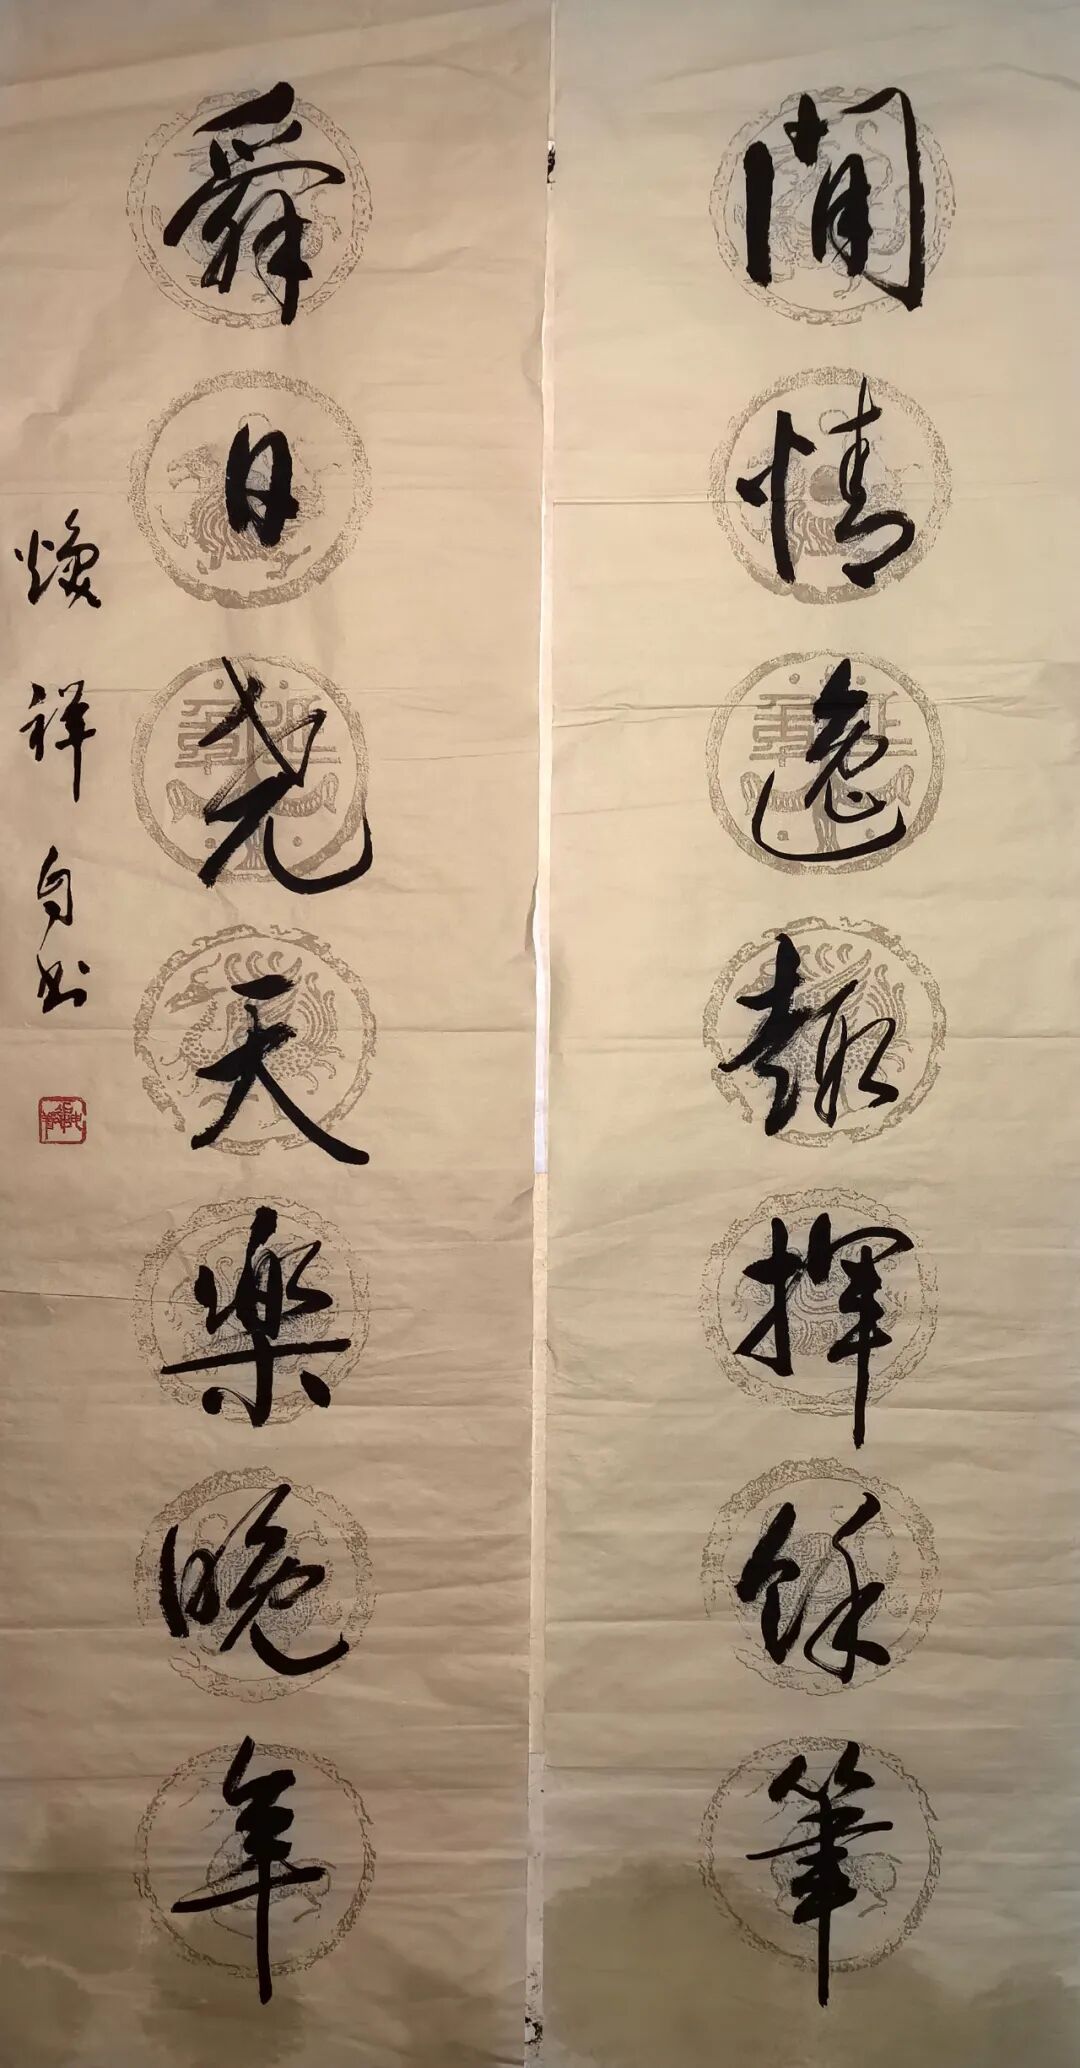 閒情逸趣揮餘筆
舜日堯天樂晚年
煥祥自书